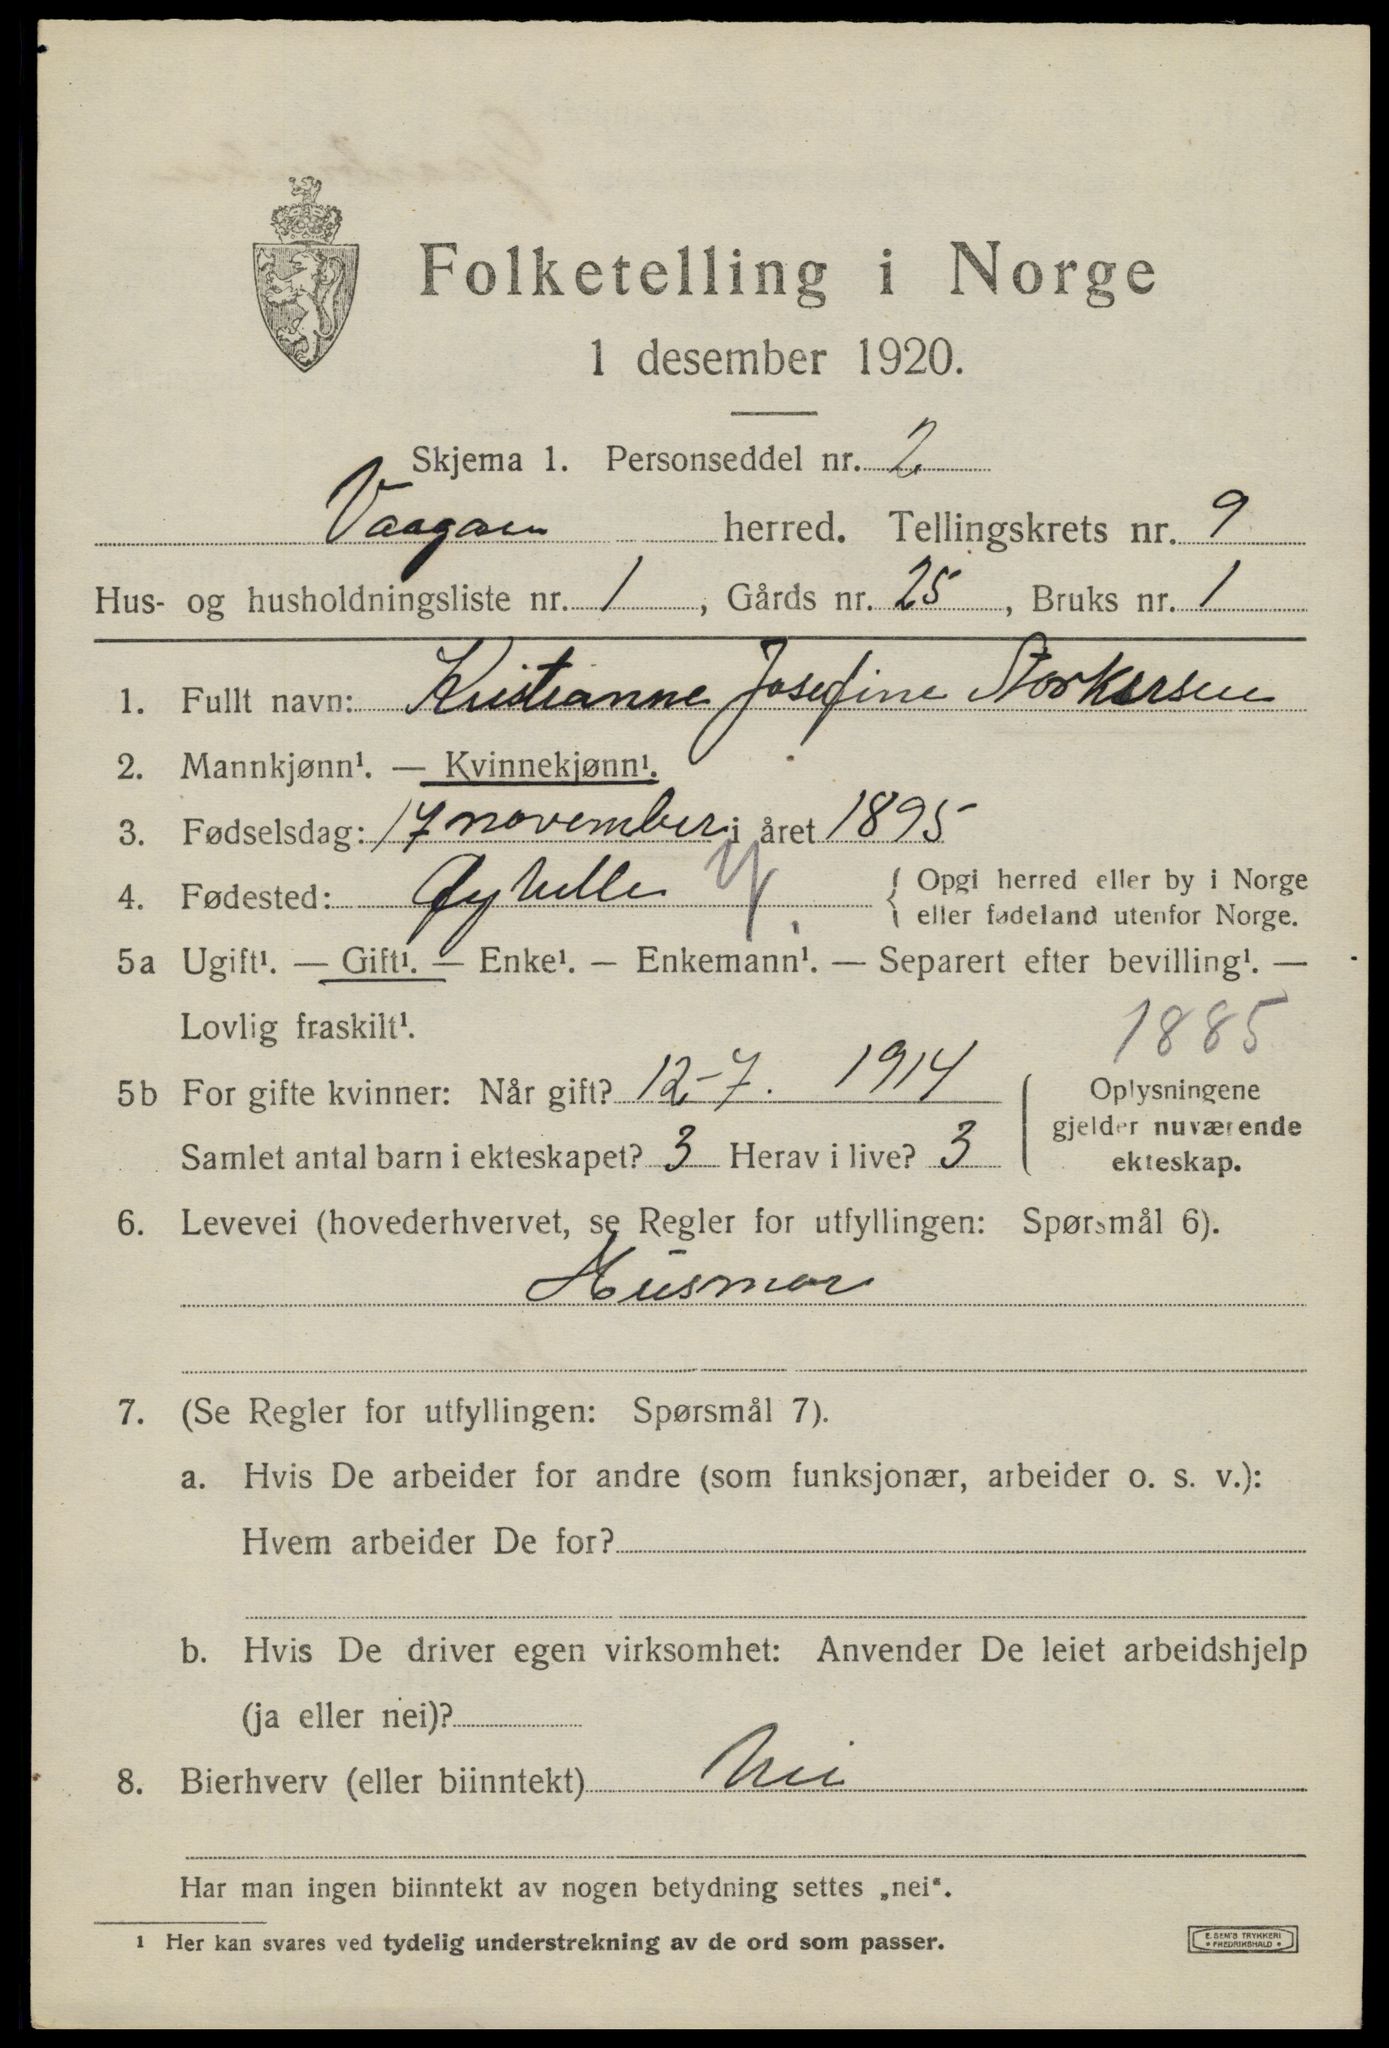 Folketelling i Norge
1 desember 1920.
Skjema 1. Personseddel nr. 2
Vaagan herred. Tellingskrets nr. 9
Hus- og husholdningsliste nr. 1, Gårds nr. 25, Bruks nr. 1
1. Fullt navn: Kristianne Josefine Storkersen
2. Mannkjønn¹. — Kvinnekjønn¹.
3. Fødselsdag: 17 november i året 1895
4. Fødested: Øyhelle { Opgi herred eller by i Norge
eller fødeland utenfor Norge.
5a Ugift¹. — Gift¹. — Enke¹. — Enkemann¹. — Separert efter bevilling¹. —
Lovlig fraskilt¹.
1885
5b For gifte kvinner: Når gift? 12-7. 1914 ( Oplysningene
gjelder nuværende
Samlet antal barn i ekteskapet? 3 Herav i live? 3 ekteskap.
6. Levevei (hovederhvervet, se Regler for utfyllingen: Spørsmål 6).
Husmor
7. (Se Regler for utfyllingen: Spørsmål 7).
a. Hvis De arbeider for andre (som funksjonær, arbeider o. s. v.):
Hvem arbeider De for?
b. Hvis De driver egen virksomhet: Anvender De leiet arbeidshjelp
(ja eller nei)?
8. Bierhverv (eller biinntekt) Nei
Har man ingen biinntekt av nogen betydning settes „nei“.
1 Her kan svares ved tydelig understrekning av de ord som passer.
E. SEM'S TRYKKERI
• FREDRIKSHALD •